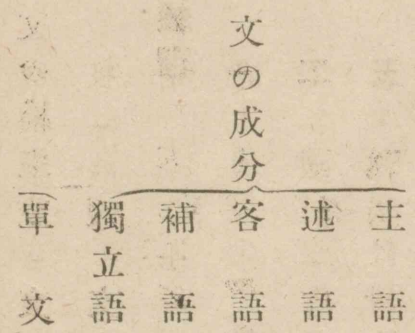 文の成分
主語
述語
客語
補語
獨立語
單文